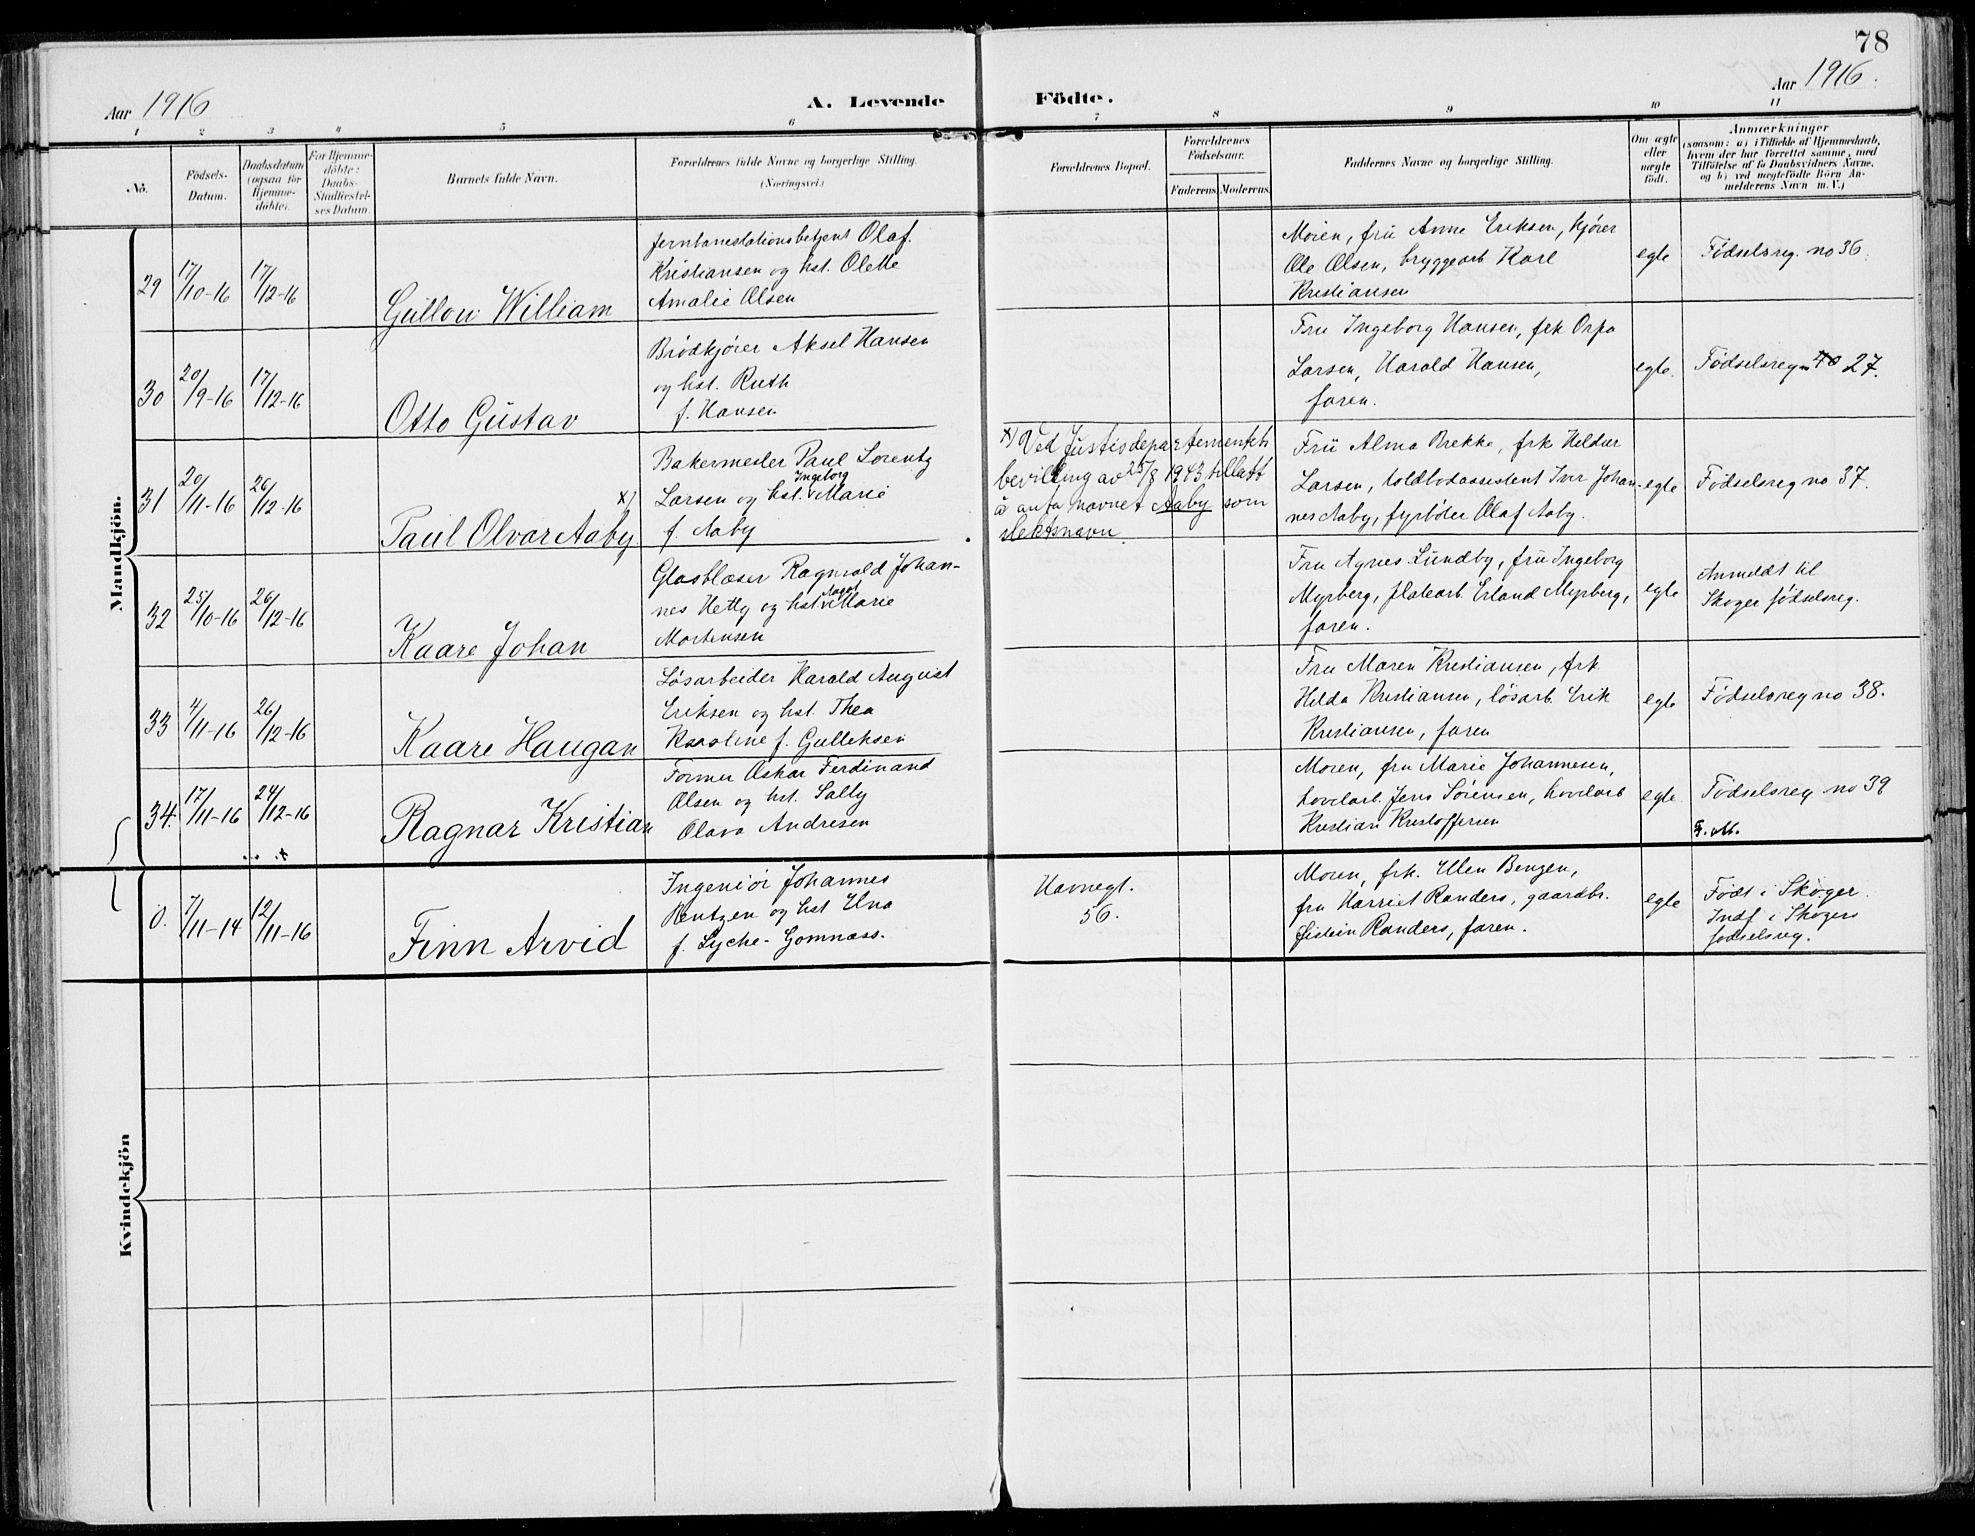 78
Aar 1916
A. Levende
Födte.
Aar 1916.
1 2 3 4 5 6 7 8 9 10 11
No.
Födsels-
Datum.
Daabsdatum
(ogsaa for
Hjemme-
döbte).
For Hjemme-
döbte:
Daabs-
Stadfæstel-
ses Datum.
Barnets fulde Navn.
Forældrenes fulde Navne og borgerlige Stilling.
(Næringsvei.)
Forældrenes Bopæl.
Forældrenes
Födselsaar.
Faderens.
Moderens.
Faddernes Navne og borgerlige Stilling.
Om ægte
eller
uægte
født.
Anmærkninger
(saasom: a) i Tilfælde af Hjemmedaab,
hvem der har forrettet samme, med
Tilföielse af to Daabsvidners Navne.
og b) ved uægtefödte Börn An-
melderens Navn m. V.)
Mandkjön.
29
17/10-16
17/12-16
Gullow William
Jernbanestationsbetjent Olaf
Kristiansen og hst. Olette
Amalie Olsen
Moren, fru Anne Eriksen, kjører
Ole Olsen, bryggearb Karl
Kristiansen
egte
Fødselsreg. no 36.
30
20/9-16
17/12-16
Otto Gustav
Brødkjører Aksel Hansen
og hst. Ruth
f. Hansen
Fru Ingeborg Hansen, frk Orpa
Larsen, Harald Hansen,
faren.
egte.
Fødselsreg no 27.
31
20/11-16
26/12-16
Paul Olvar Aaby
x)
Bakermester Paul Lorentz
Ingeborg
Larsen og hst. Marie
f. Aaby
x) Ved Justisdepartementets
bevilling av 25/8 1943 tillatt
å anta navnet Aaby som
slektsnavn.
Fru Alma Brekke, frk Hildur
Larsen, toldbodassistent Iver Johan-
nes Aaby, fyrbøter Olaf Aaby.
egte
Fødselsreg no 37.
32
25/10-16
26/12-16
Kaare Johan
Glasblaser Ragnvald Johan-
nes Hetty og hst. Marie
Mortensen
Fru Agnes Lundby, fru Ingeborg
Myrberg, filearb. Erland Myrberg,
faren.
egte
Anmeldt til
Skoger fødselsreg.
33
4/11-16
26/12-16
Kaare Haugan
Løsarbeider Harald August
Eriksen og hst. Thea
Karoline f. Gulleksen
Fru Maren Kristiansen, frk
Hilda Kristiansen, løsarb. Erik
Kristiansen, faren
egte
Fødselsreg no 38.
34.
17/11-16
24/12-16
Ragnar Kristian
Former Oskar Ferdinand
Olsen og hst. Sally
Olava Andresen
Moren, fru Marie Johannesen,
hovelarb. Jens Sørensen, hovelarb
Kristian Kristoffersen
egte
Fødselsreg no 39
0.
7/11-14
12/11-16
Finn Arvid
Ingeniør Johannes
Bentzen og hst Una
f. Lyche-Gomnæss.
Havnegt.
56.
Moren, frk. Ellen Benzen,
fru Harriet Randers, gaardbr.
Øistein Randers, faren.
egte
Født i Skoger
Indf i Skogers
fødselsreg.
Kvindekjön